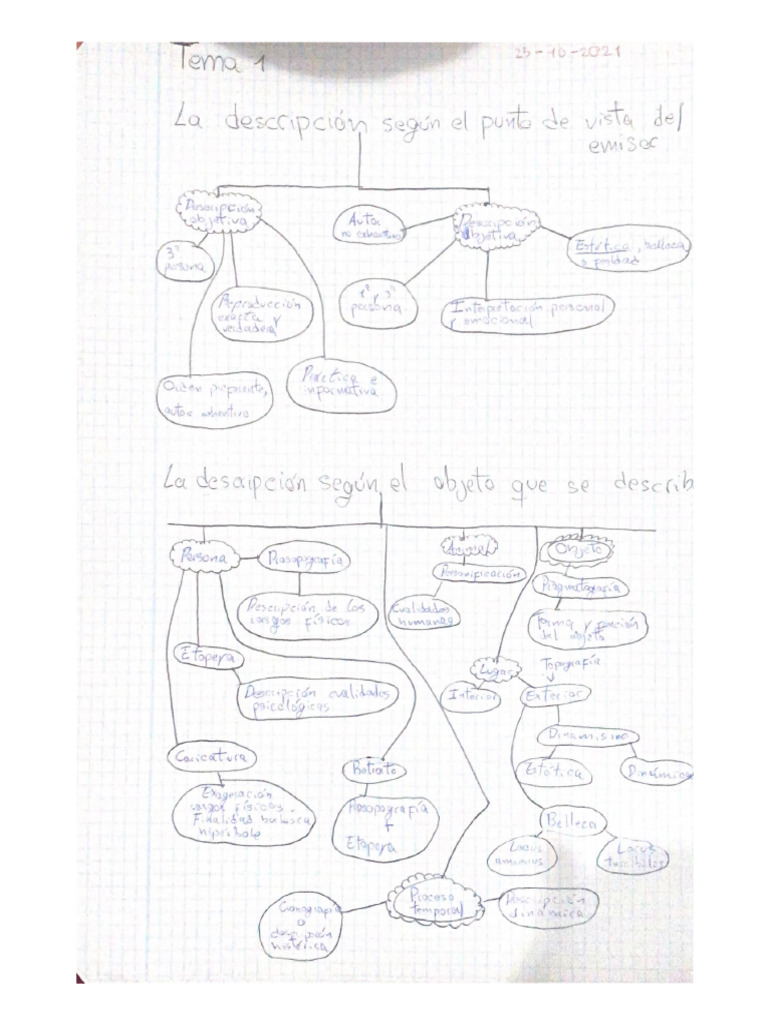 Tema 1
25-10-2021
La descripción según el punto de vista del
emisor
Descripción
objetiva
Auto
no exhaustivo
Descripción
objetiva
Estética, belleca
o
3ª
persona
1ª y 3ª
persona
Reproducción
exacta y
verdadera
Interpretación personal
y emocional
Orden
auto e exhaustivo
Práctica e
informativa
La descripción según el objeto que se describ
Persona
Prosopografía
Animal
Objeto
Personificación
Pragmatografía
Descripción de los
rasgos físicos
Cualidades
humanas
Forma y función
del objeto
Etopeya
Lugar
Topografía
Descripción cualidades
psicológicas
Interior
Exterior
Dinamismo
Caricatura
Retrato
Estática
Dinámica
Exageración
rasgos físicos.
Finalidad burlesca
hipérbole
Prosopografía
+
Etopeya
Belleca
Locus
amoenus
Locus
terribiles
Proceso
temporal
Descripción
dinámica
Cronografía
o
descripción
histórica